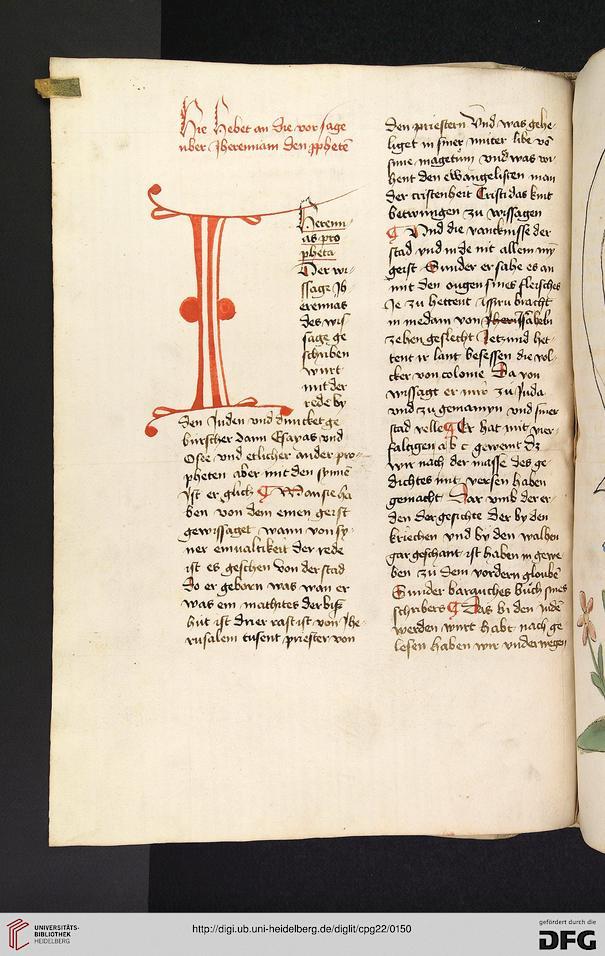 Hie Hebet an die vor sage
uber Jheremiam den ppheten
Jheremi-
as pro
pheta
Der wi-
ssage Jh-
eremias
des wis
sage ge
schriben
wurt
mit der
rede by
den Juden und duncket ge
burscher dann Esayas und
Osee und etlicher ander pro-
pheten aber mit den synne
ist er glich Wan sie ha
ben von dem einen geist
gewissaget wann von sy-
ner einualtikeit der rede
ist es geschen von der stad
do er geborn was wan er
was ein
hut ist drier rast ist von Jhe-
rusalem tusent priester von
den priestern Vnd was gehe-
liget in siner muter libe vō
sine magetum vnd was wi-
hent den ewangelisten man
der cristenheit Cristi das kint
betwungen zu wissagen
Vnd die vancknisse der
stad vnd in de nit allein mȳ
geist Sunder er sahe es an
mit den ougen sines fleisches
Je zu hettent Assiri bracht
in medam von Israheln
zehen geslecht Jetzund het-
tent ir lant besessen die vol-
cker von colonie Da von
wissagt er nur zu Juda
vnd zu gemamyn vnd siner
stad velle Er hat mit vier-
faltigen a b c geweint dz
wir nach der masse des ge
dichtes mit versen haben
gemacht Dar vmb der er-
den der gesichte der by den
kriechen vnd by den walhen
gar geschant ist haben in gewe
ben zu dem vordern glouben
Sunder barauches buch sines
schribers Das bi den Juden
werden wurt habt nach ge
lesen haben wir vnderwegen
UNIVERSITÄTS-
BIBLIOTHEK
HEIDELBERG
http://digi.ub.uni-heidelberg.de/diglit/cpg22/0150
gefördert durch die
DFG